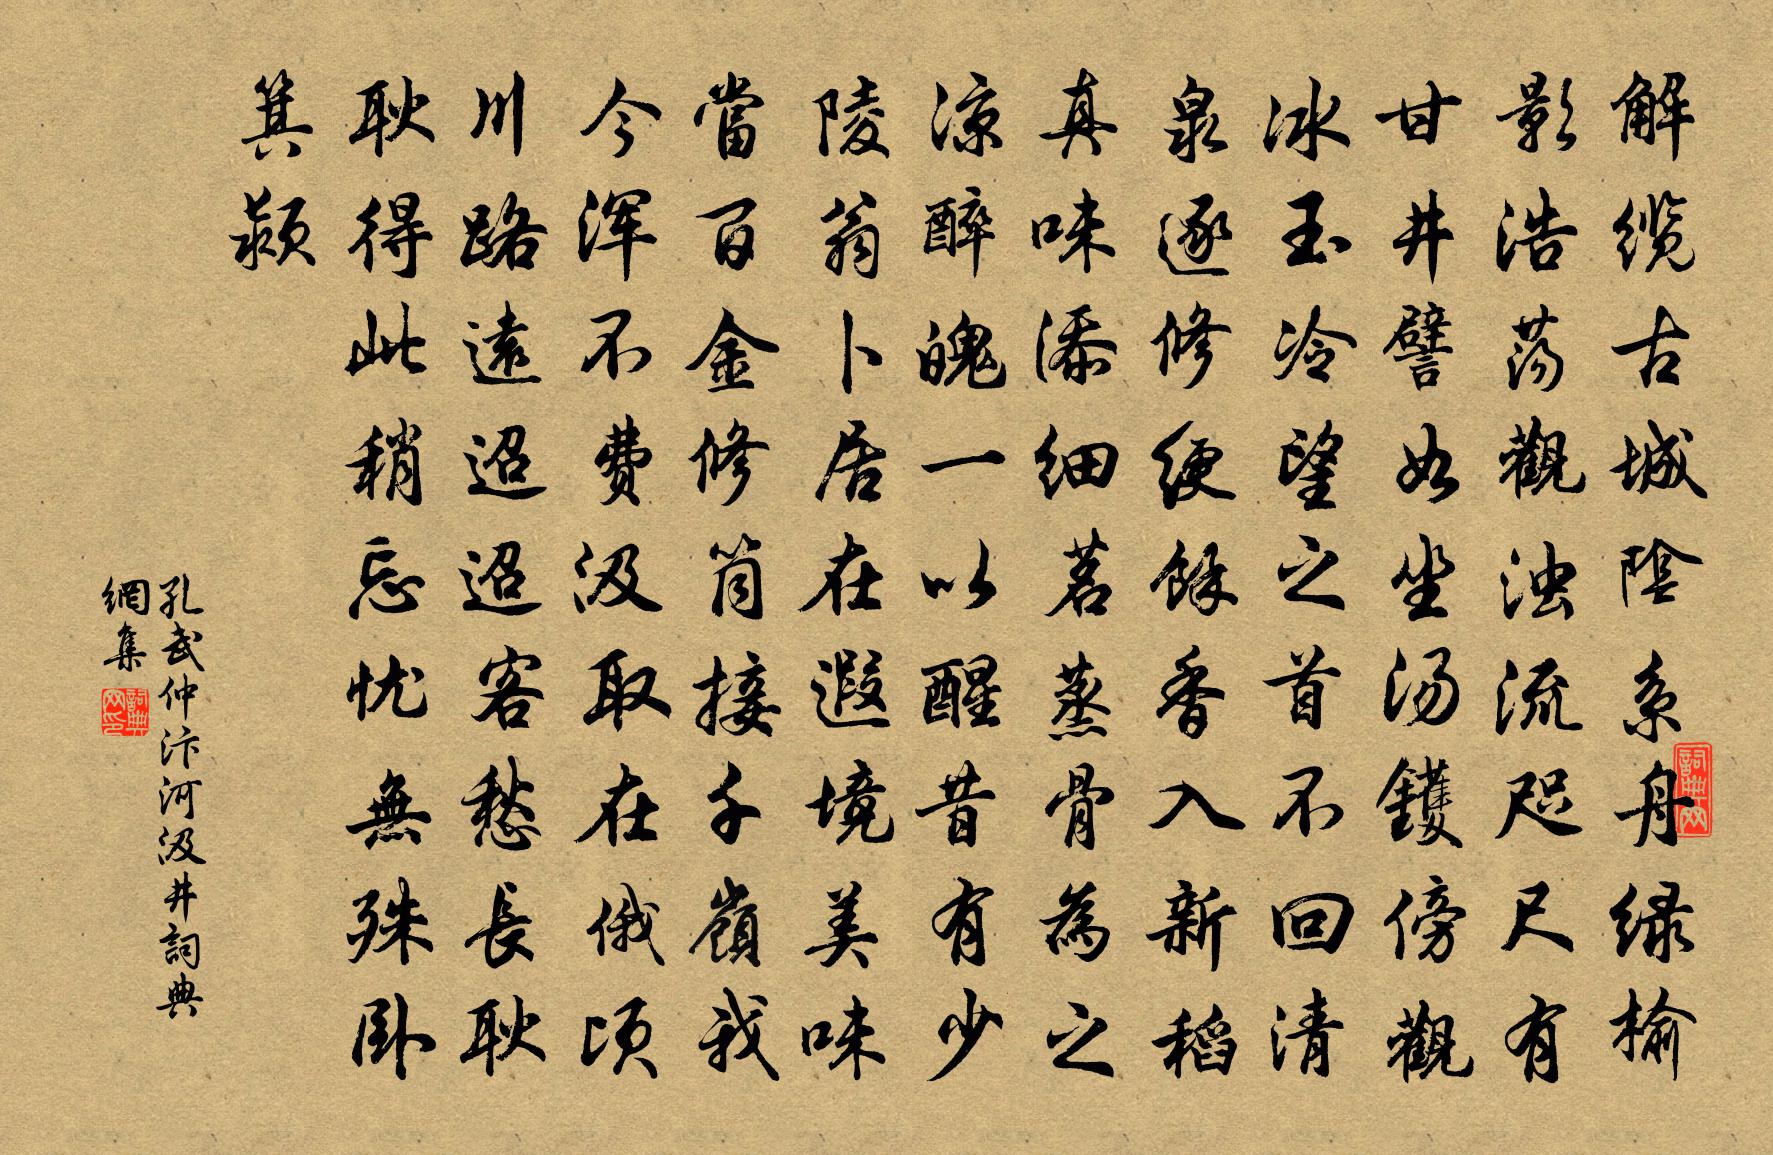 解缆古城陰系舟緑榆
影浩荡觀浊流咫尺有
甘井譬如坐汤鑊傍觀
冰玉冷望之首不回清
泉逐修绠餘香入新稻
真味添细茗蒸骨為之
凉醉魄一以醒昔有少
陵翁卜居在遐境美味
當百金修筒接千嶺我
今浑不费汲取在俄顷
川路遠迢迢客愁長耿
耿得此稍忘忧無殊卧
箕颍
孔武仲汴河汲井詞典
網集
詞典网
詞典网印